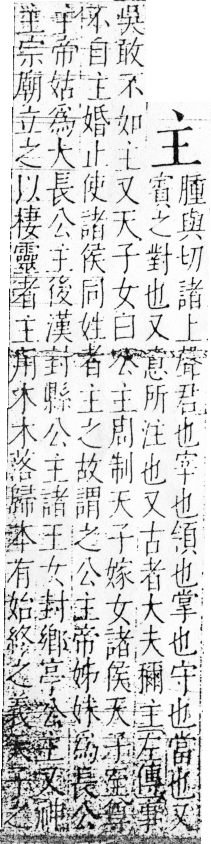 主
腫與切諸上聲君也宰也領也掌也守也當也又
賓之對也又意所注也又古者大夫稱主左傳事
吳敢不如主又天子女曰公主周制天子嫁女諸侯天子至尊
不自主婚止使諸侯同姓者主之故謂之公主帝姊妹為長公
主帝姑為大長公主後漢封縣公主諸王女封鄉亭公主又神
主宗廟立之以棲靈者主用木木落歸本有始終之義天子之